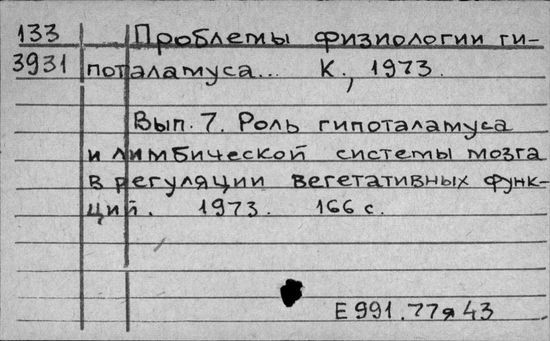 133 Проблемы физиологии ги-
3931 поталамуса... К., 1973.
Вып. 7. Роль гипоталамуса
и лимбической системы мозга
в регуляции вегетативных функ-
ций. 1973. 166 с.
Е991.77я43